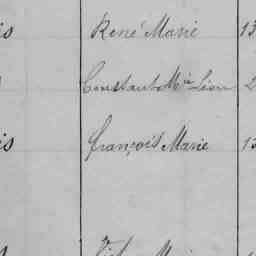 is René Marie 13
Constant Mie Léon 2
is François Marie 13